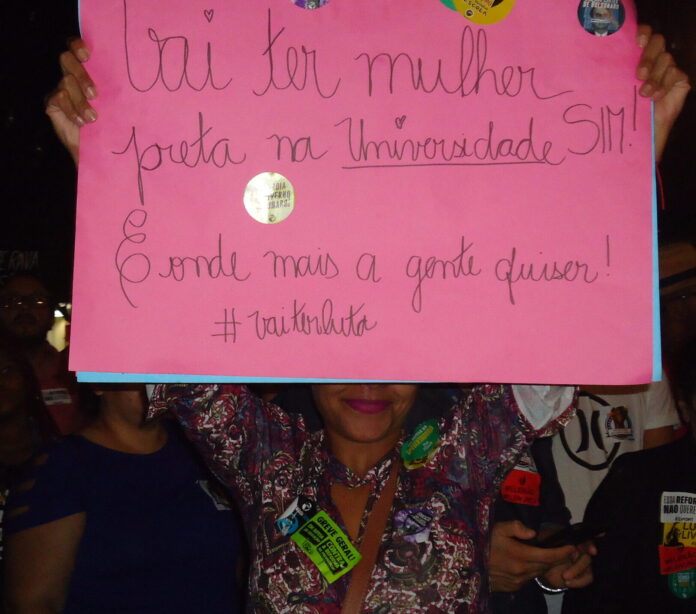 ESCOLA
DE BOLSONARO
Vai ter mulher
preta na Universidade SIM!
E onde mais a gente quiser!
#vaiterluta
GREVE GERAL!
CONTRA
ESSA REFORMA
NÃO QUEREMOS